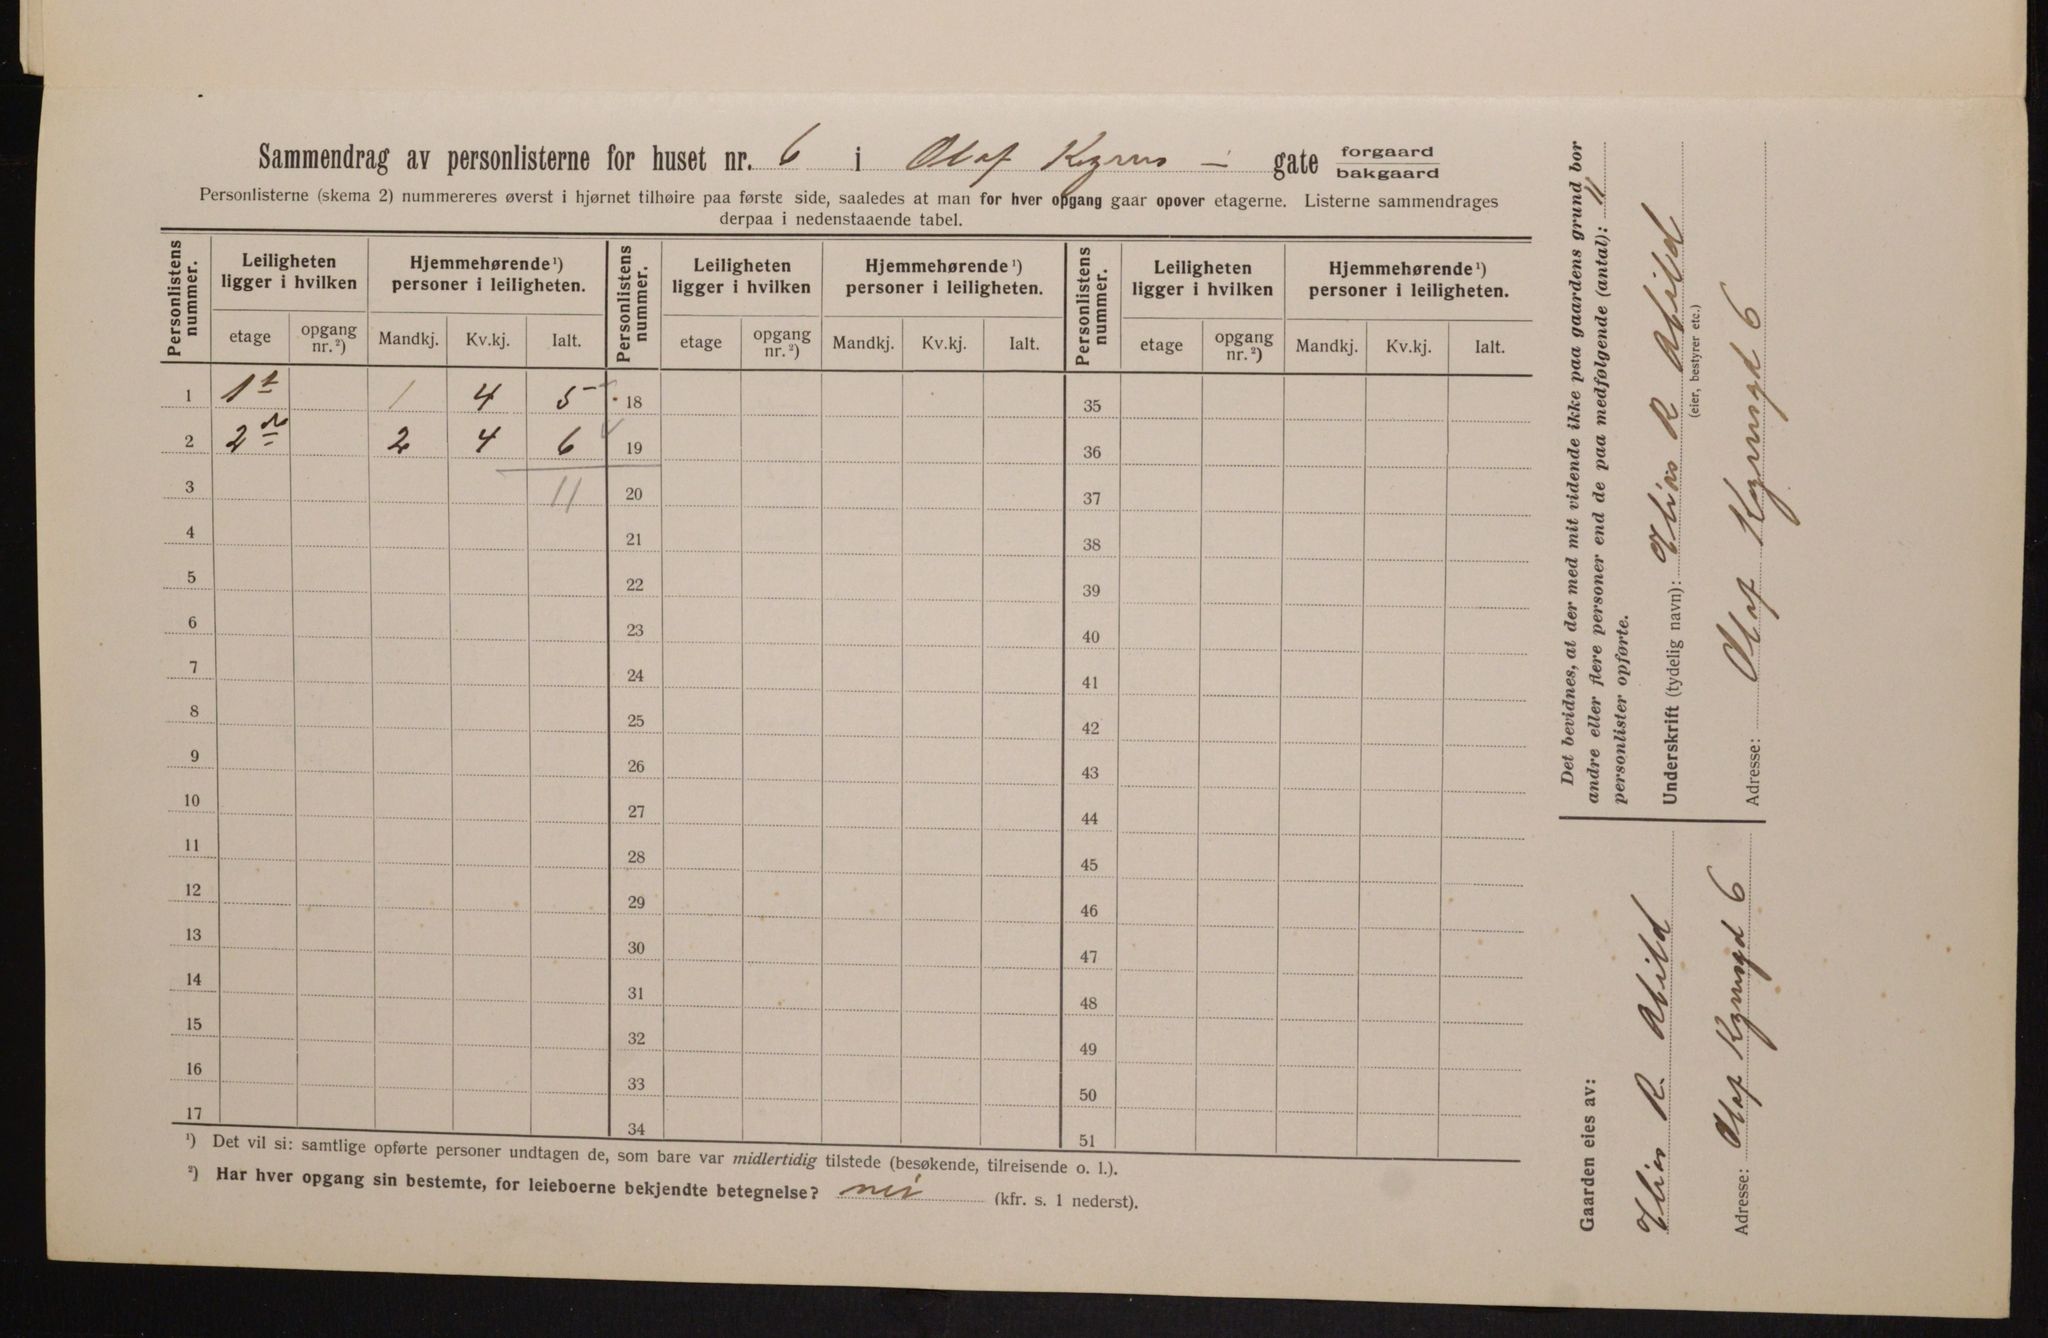 Sammendrag av personlisterne for huset nr. 6 i Olaf Kyrres gate forgaard bakgaard
Personlisterne (skema 2) nummereres øverst i hjørnet tilhøire paa første side, saaledes at man for hver opgang gaar opover etagerne. Listerne sammendrages
derpaa i nedenstaaende tabel.
Personlistens nummer. Leiligheten ligger i hvilken Hjemmehørende¹) personer i leiligheten. Personlistens nummer. Leiligheten ligger i hvilken Hjemmehørende¹) personer i leiligheten. Personlistens nummer. Leiligheten ligger i hvilken Hjemmehørende¹) personer i leiligheten.
etage opgang nr.²) Mandkj. Kv.kj. Ialt. etage opgang nr.²) Mandkj. Kv.kj. Ialt. etage opgang nr.²) Mandkj. Kv.kj. Ialt.
1 1st 1 4 5 18 35
2 2den 2 4 6 19 36
3 11 20 37
4 21 38
5 22 39
6 23 40
7 24 41
8 25 42
9 26 43
10 27 44
11 28 45
12 29 46
13 30 47
14 31 48
15 32 49
16 33 50
17 34 51
¹) Det vil si: samtlige opførte personer undtagen de, som bare var midlertidig tilstede (besøkende, tilreisende o. l.).
²) Har hver opgang sin bestemte, for leieboerne bekjendte betegnelse? nei (kfr. s. 1 nederst).
Det bevidnes, at der med mit vidende ikke paa gaardens grund bor
andre eller flere personer end de paa medfølgende (antal): 11
personlister opførte.
Underskrift (tydelig navn): R Abild
(eier, bestyrer etc.)
Adresse: Olaf Kyrresgd 6
Gaarden eies av:
R. Abild
Adresse: Olaf Kyrresgd 6